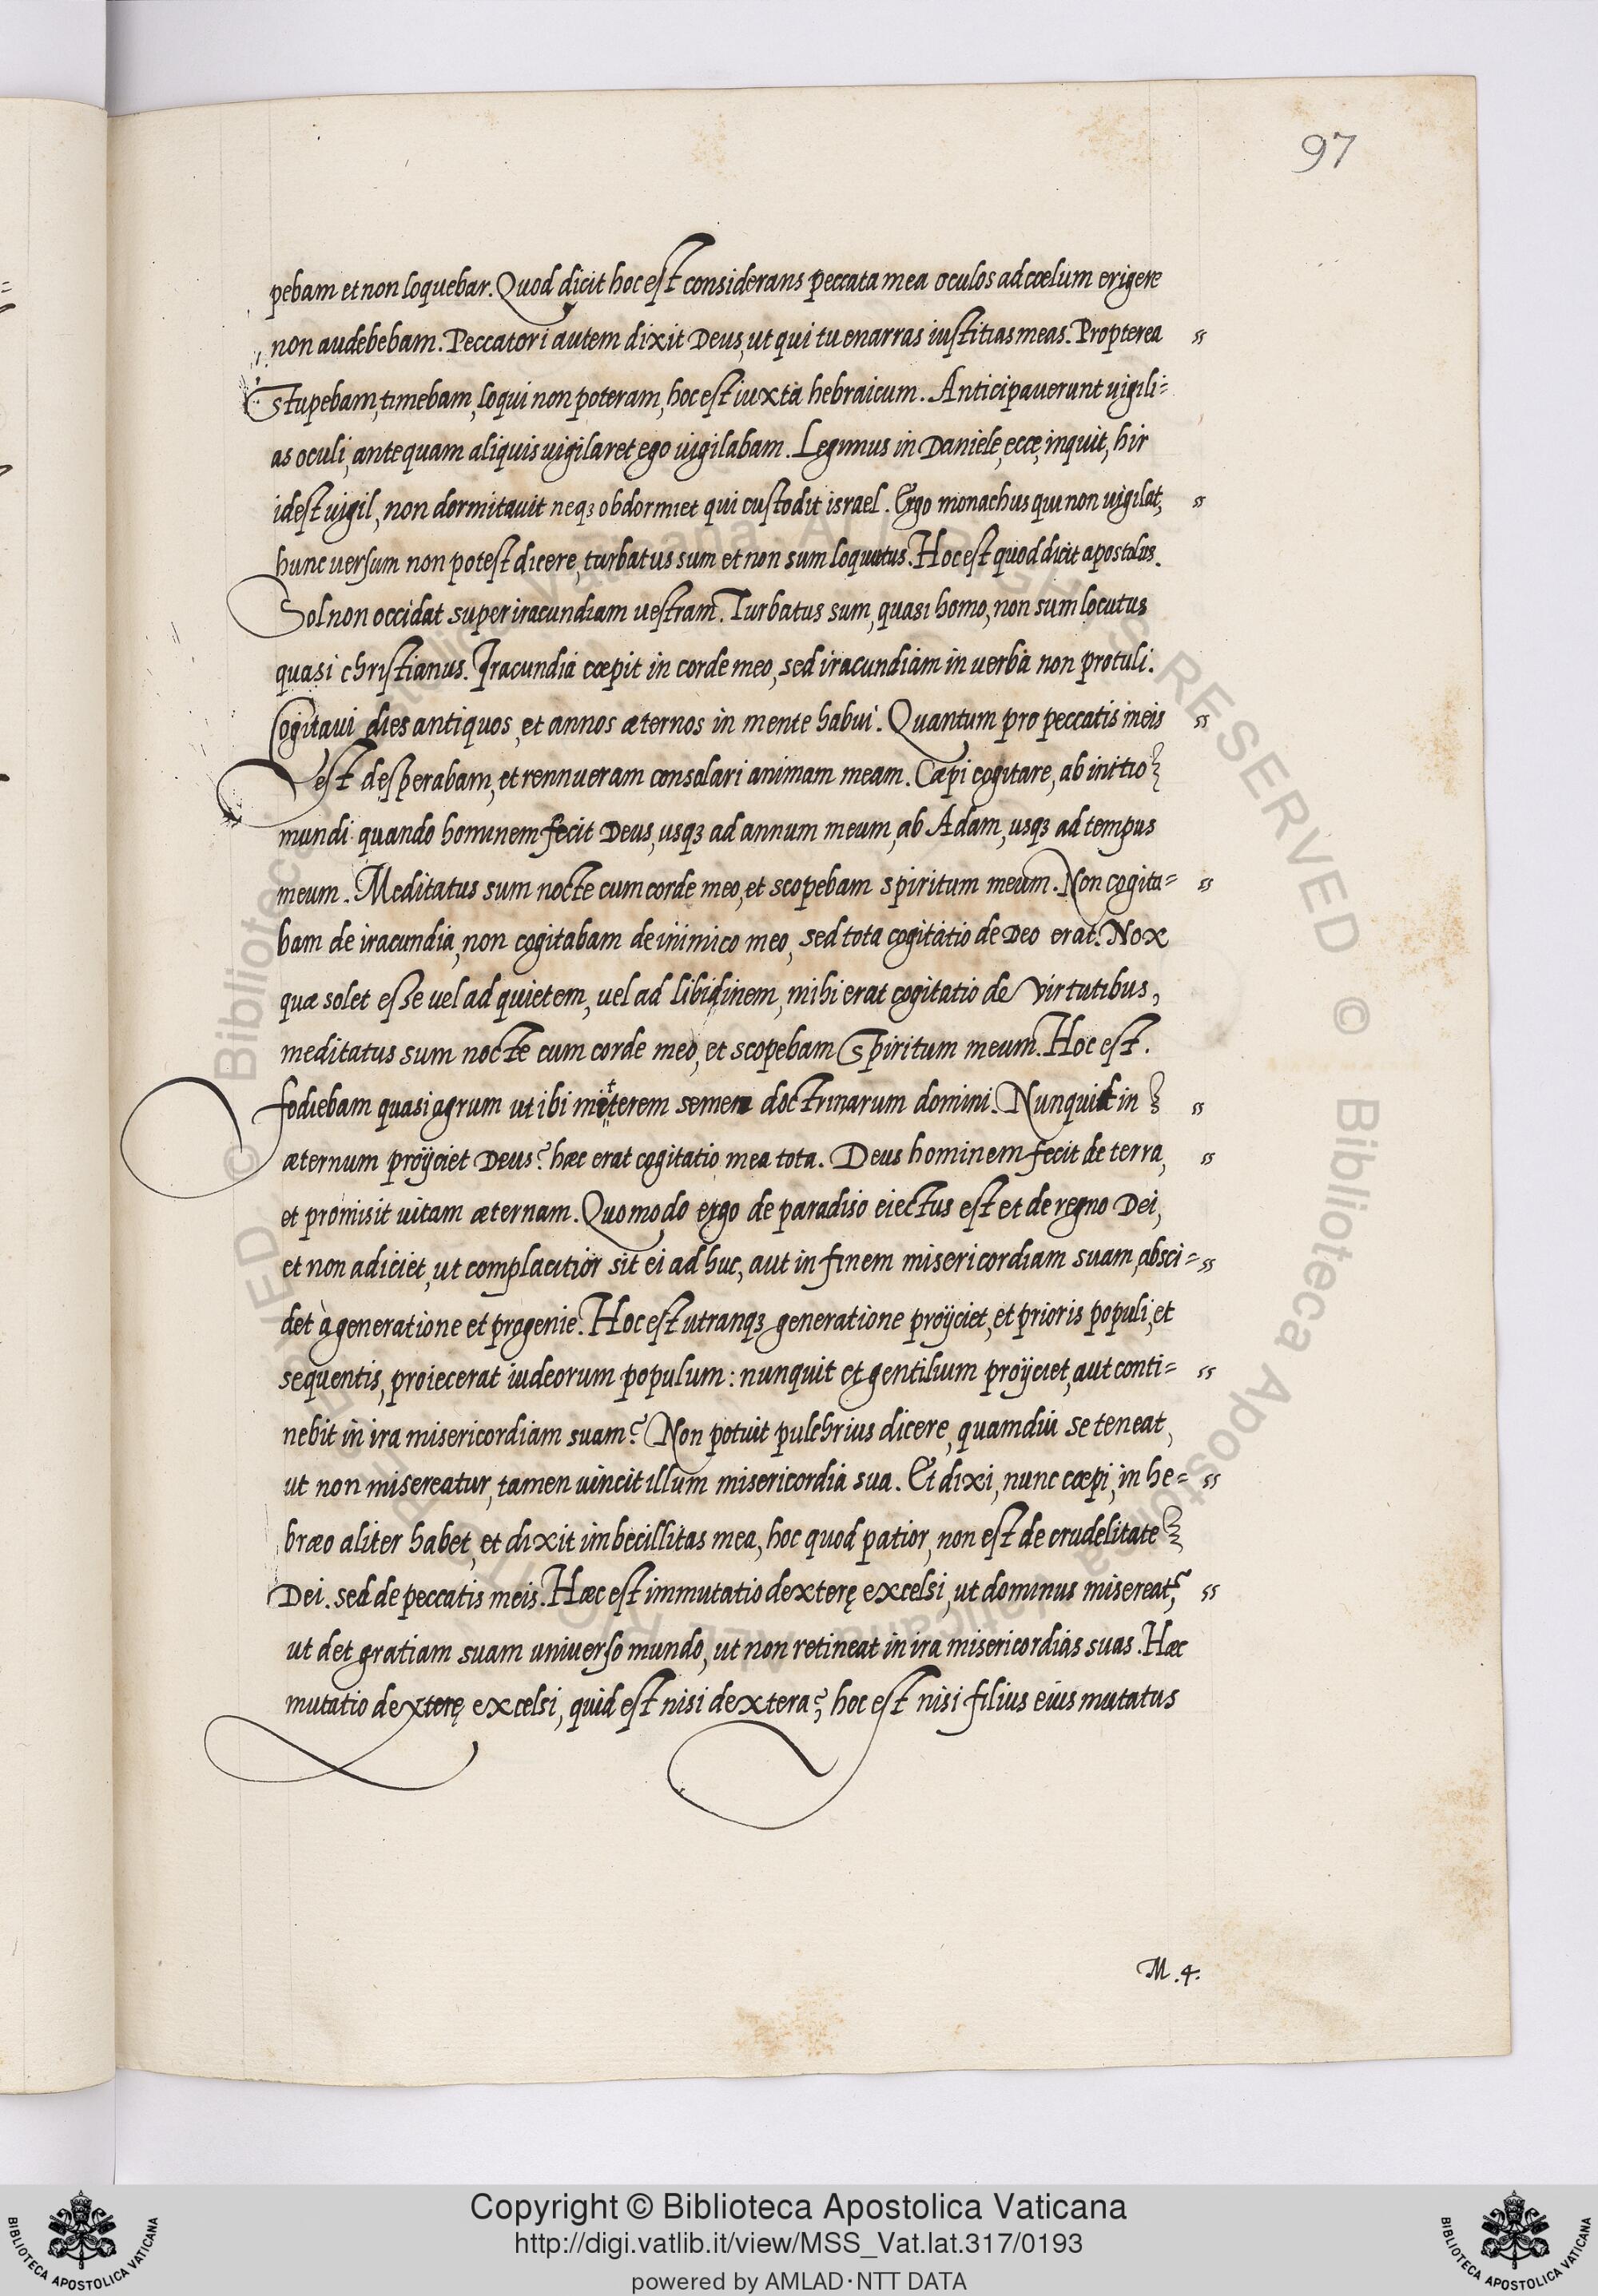 97
pebam et non loquebar. Quod dicit hoc est considerans peccata mea oculos ad cœlum erigere
non audebebam. Peccatori autem dixit Deus, ut qui tu enarras iustitias meas. Propterea "
stupebam, timebam, loqui non poteram, hoc est iuxta hebraicum. Anticipauerunt uigili=
as oculi, antequam aliquis uigilaret ego uigilabam. Legimus in Daniele, ecce, inquit, hir
idest uigil, non dormitauit neqꝫ obdormiet qui custodit israel. Ergo monachus qui non uigilat, "
hunc uersum non potest dicere, turbatus sum et non sum loquutus. Hoc est quod dicit apostolus.
Sol non occidat super iracundiam uestram. Turbatus sum, quasi homo, non sum locutus
quasi christianus. Iracundia cœpit in corde meo, sed iracundiam in uerba non protuli.
Cogitaui dies antiquos, et annos æternos in mente habui. Quantum pro peccatis meis "
est desperabam, et rennueram consolari animam meam. Cæpi cogitare, ab initio
mundi quando hominem fecit Deus, usqꝫ ad annum meum, ab Adam, usqꝫ ad tempus
meum. Meditatus sum nocte cum corde meo, et scopebam spiritum meum. Non cogita= "
bam de iracundia, non cogitabam de inimico meo, sed tota cogitatio de Deo erat. Nox
quæ solet esse uel ad quietem, uel ad libidinem, mihi erat cogitatio de virtutibus,
meditatus sum nocte cum corde meo, et scopebam spiritum meum. Hoc est.
fodiebam quasi agrum ut ibi mitterem semen doctrinarum domini. Nunquid in "
æternum proijciet Deus? hæc erat cogitatio mea tota. Deus hominem fecit de terra, "
et promisit uitam æternam. Quomodo ergo de paradiso eiectus est et de regno Dei,
et non adiciet, ut complacitior sit ei ad huc, aut in finem misericordiam suam absci= "
det à generatione et progenie. Hoc est utranqꝫ generatione proijciet, et prioris populi, et
sequentis, proiecerat iudeorum populum: nunquit et gentilium proijciet, aut conti= "
nebit in ira misericordiam suam? Non potuit pulchrius dicere, quamdiu se teneat,
ut non misereatur, tamen uincit illum misericordia sua. Et dixi, nunc cœpi, in he= "
bræo aliter habet, et dixit imbecillitas mea, hoc quod patior, non est de crudelitate
Dei. sed de peccatis meis. Hæc est immutatio dexterę excelsi, ut dominus misereat? "
ut det gratiam suam uniuerso mundo, ut non retineat in ira misericordias suas. Hæc
mutatio dexterę excelsi, quid est nisi dextera? hoc est nisi filius eius mutatus
M.4.
Copyright © Biblioteca Apostolica Vaticana
http://digi.vatlib.it/view/MSS_Vat.lat.317/0193
powered by AMLAD·NTT DATA
BIBLIOTECA APOSTOLICA VATICANA
BIBLIOTECA APOSTOLICA VATICANA